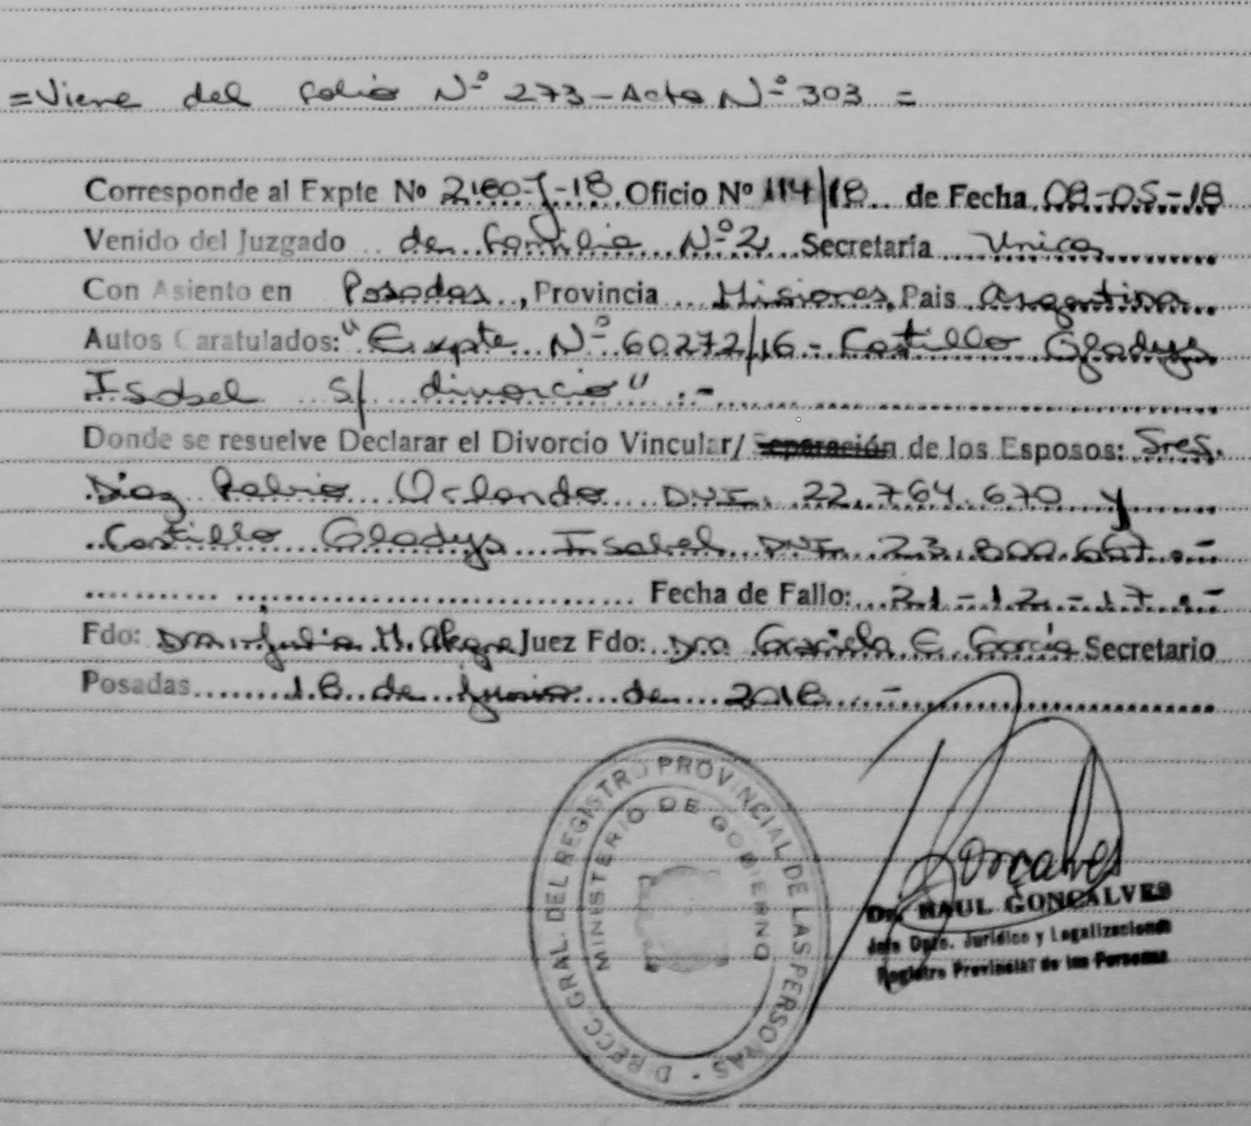 =Viene del folio Nº 273 - Acta Nº 303 =
Corresponde al Expte Nº 2180-J-18 Oficio Nº 114/18 de Fecha 08-05-18
Venido del Juzgado de Familia Nº 2 Secretaría Unica
Con Asiento en Posadas, Provincia Misiones, Pais Argentina
Autos Caratulados: "Expte Nº 60272/16 - Castillo Gladys
Isabel s/ divorcio" .-
Donde se resuelve Declarar el Divorcio Vincular/ Separación de los Esposos: Sres.
Diaz Orlando DNI. 22.764.670 y
Castillo Gladys Isabel DNI 23.800.667 .-
Fecha de Fallo: 21-12-17 .-
Fdo: Dra. Julia M. Alegre Juez Fdo: Dra Graciela E. García Secretario
Posadas 18 de Junio de 2018 .-
DIRECC. GRAL. DEL REGISTRO PROVINCIAL DE LAS PERSONAS -
MINISTERIO DE GOBIERNO
Goncalves
Dr. RAUL GONCALVES
Jefe Dpto. Jurídico y Legalizaciones
Registro Provincial de las Personas